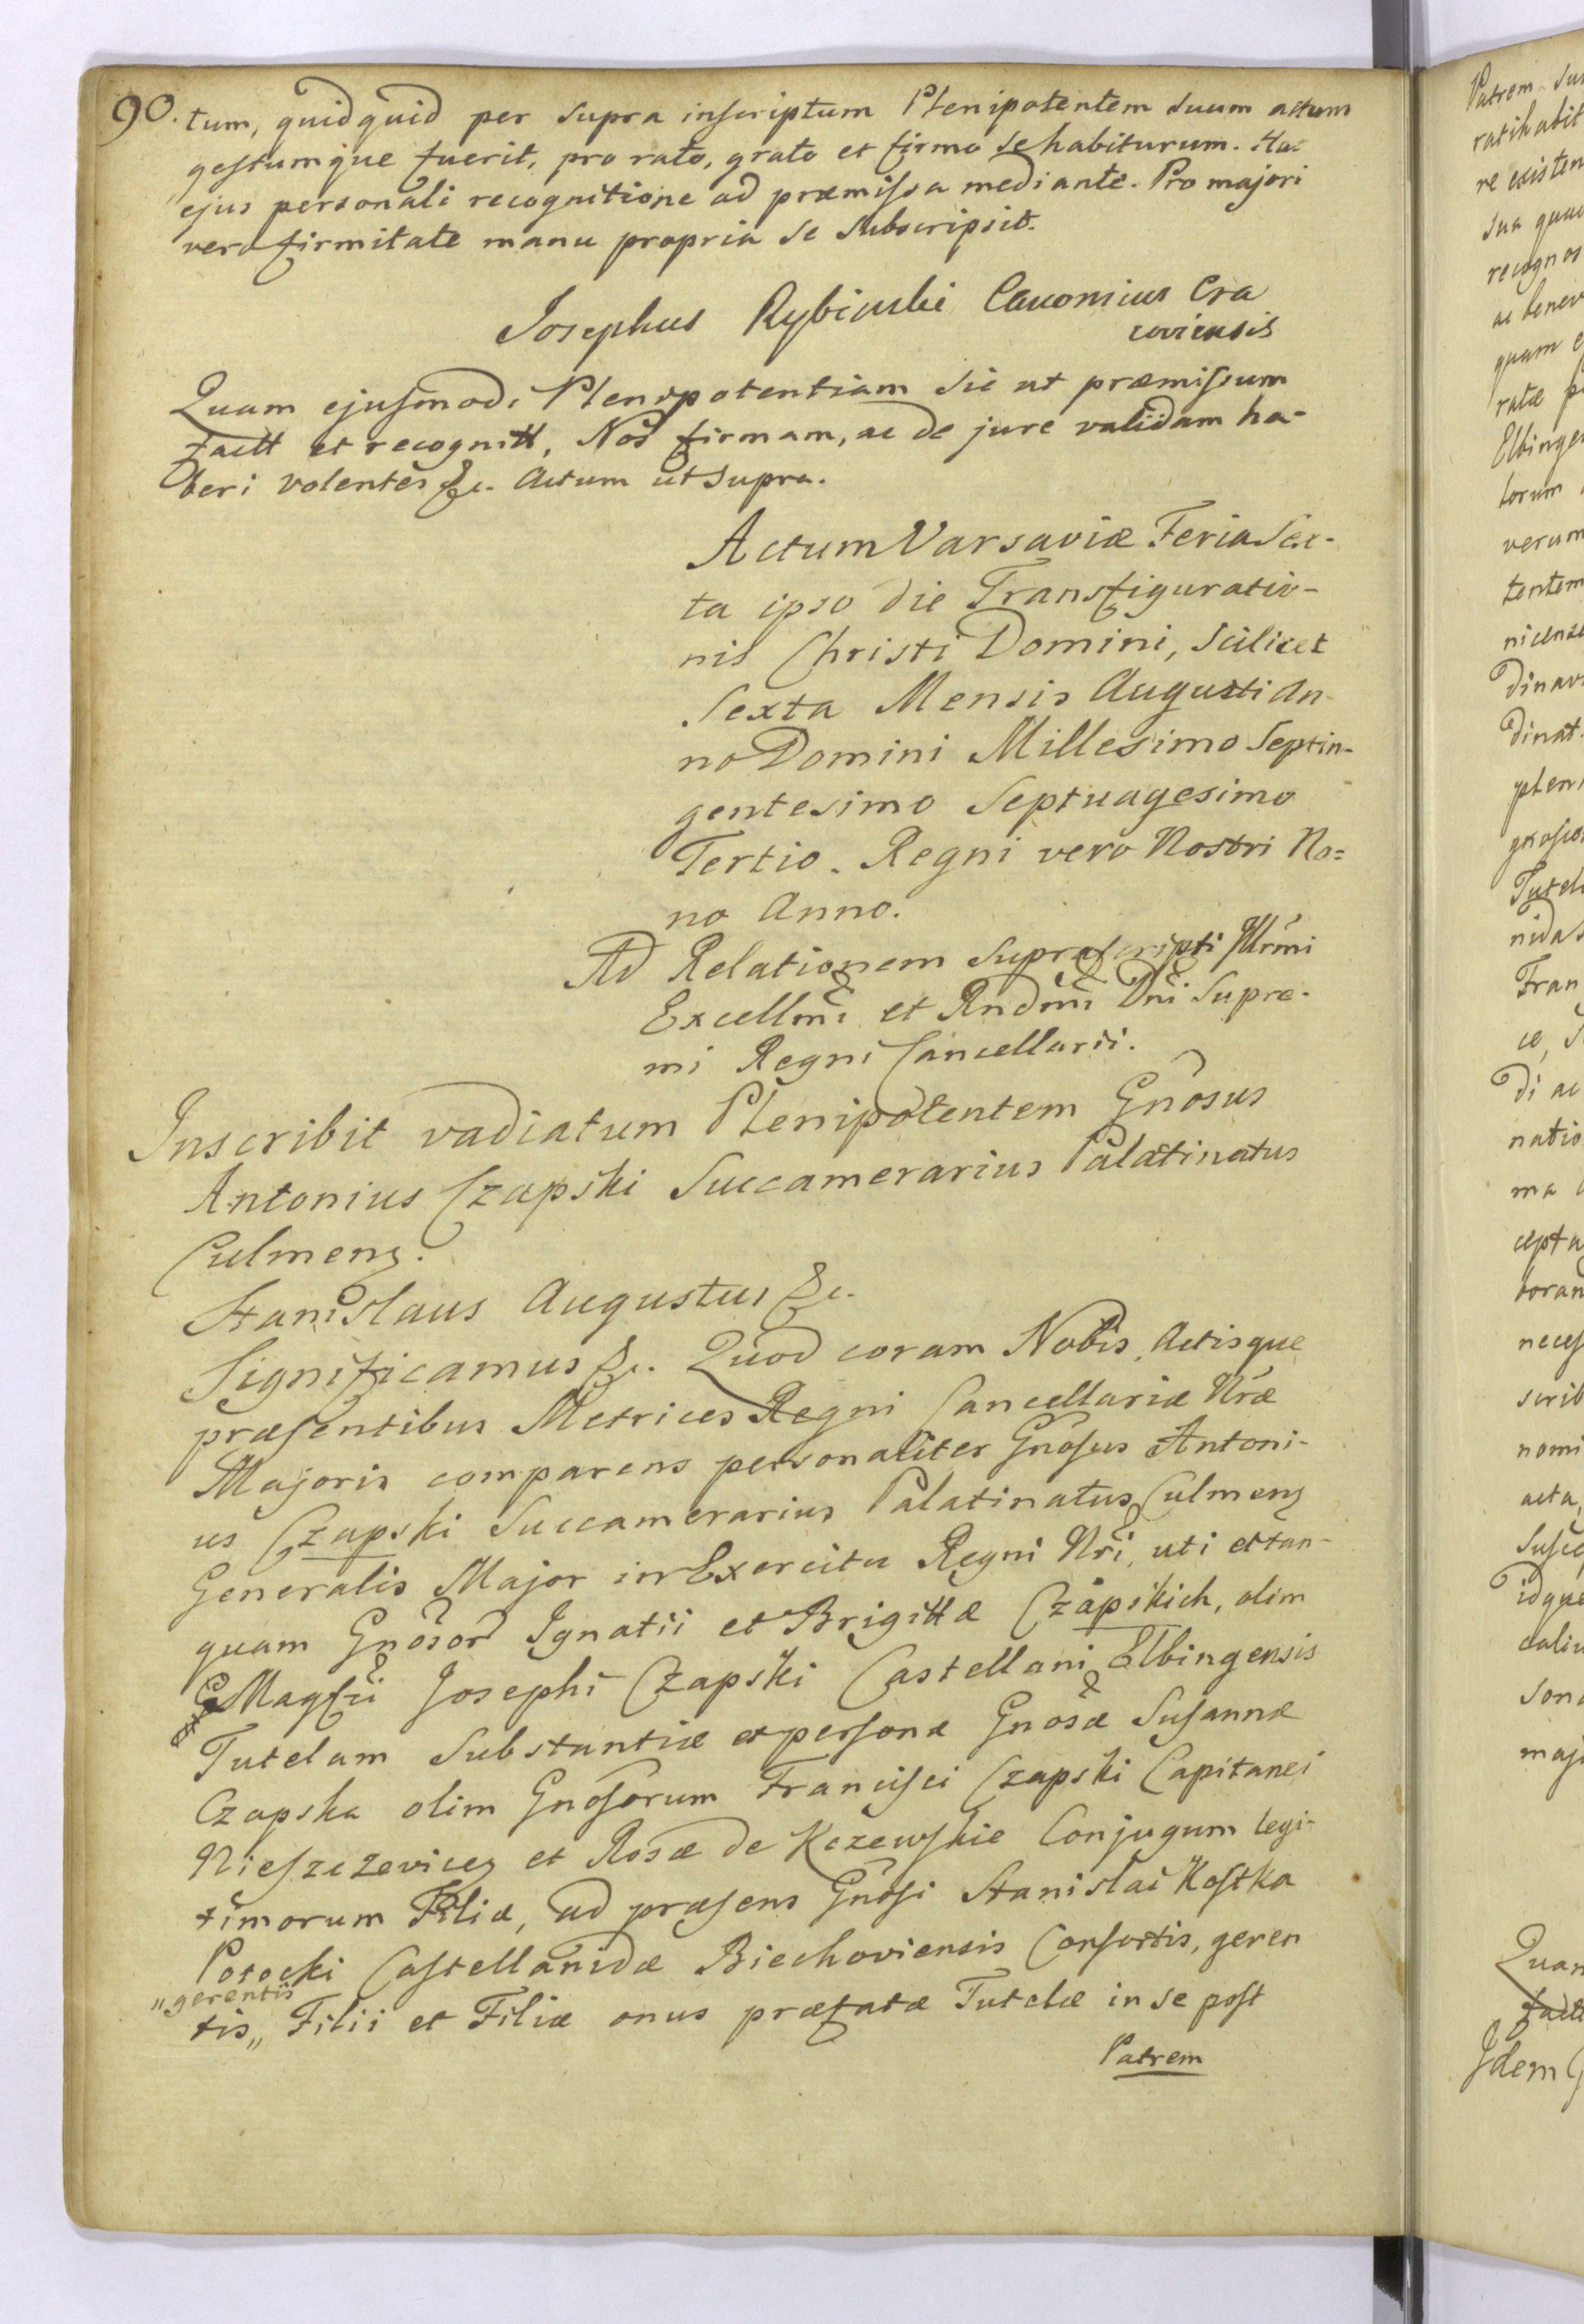 90. tum, quidquid per supra inscriptum Plenipotentem suum actum
gestumque fuerit, pro rato, grato et firmo se habiturum. Hac
ejus personali recognitione ad præmissa mediante. Pro majori
vero firmitate manu propria se subscripsit.
Josephus Rybiński Canonicus Cra
coviensis
Quam ejusmodi Plenipotentiam sic ut præmissum
factt et recognitt, Nos firmam, ac de jure validam ha-
beri volentes &c. Actum ut supra.
Actum Varsaviæ Feria Sex-
ta ipso die Transfiguratio-
nis Christi Domini, scilicet
Sexta Mensis Augusti An-
no Domini Millesimo Septin-
gentesimo Septuagesimo
Tertio. Regni vero Nostri No=
no Anno.
Ad Relationem suprascripti Illrmi
Excellmi et Rndmi Dni Supre-
mi Regni Cancellarii.
Inscribit vadiatum Plenipotentem Gnosus
Antonius Czapski Succamerarius Palatinatus
Culmens.
Stanislaus Augustus &c.
Significamus &c. Quod coram Nobis, Actisque
præsentibus Metrices Regni Cancellariæ Nræ
Majoris comparens personaliter Gnosus Antoni-
us Czapski Succamerarius Palatinatus Culmens
Generalis Major in Exercitu Regni Nri, uti et tan-
quam Gnosor Ignatii et Brigittæ Czapskich, olim
Magfii Josephi Czapski Castellani Elbingensis
Tutelam Substantiæ et personæ Gnosæ Susannæ
Czapska olim Gnosorum Francisci Czapski Capitanei
Nieszczevices et Rosæ de Kczewskie Conjugum legi-
timorum Filiæ, ad præsens Gnosi Stanislai Kostka
Potocki Castellanidæ Biechoviensis Consortis, geren
"gerentis
tis,, Filii et Filiæ onus præfatæ Tutelæ in se post
Patrem
Patrem su
ratihabit
re existen
sua
recognos
ac benev
quam e
ratæ
Elbinge
torum
verum
tentem
nicense
dinat.
Tutel
Fran
ce,
di ac
natio
ma
cepta
boran
neces
scrib
nomi
acta,
idque
son
maj
Quam
factt
Idem G